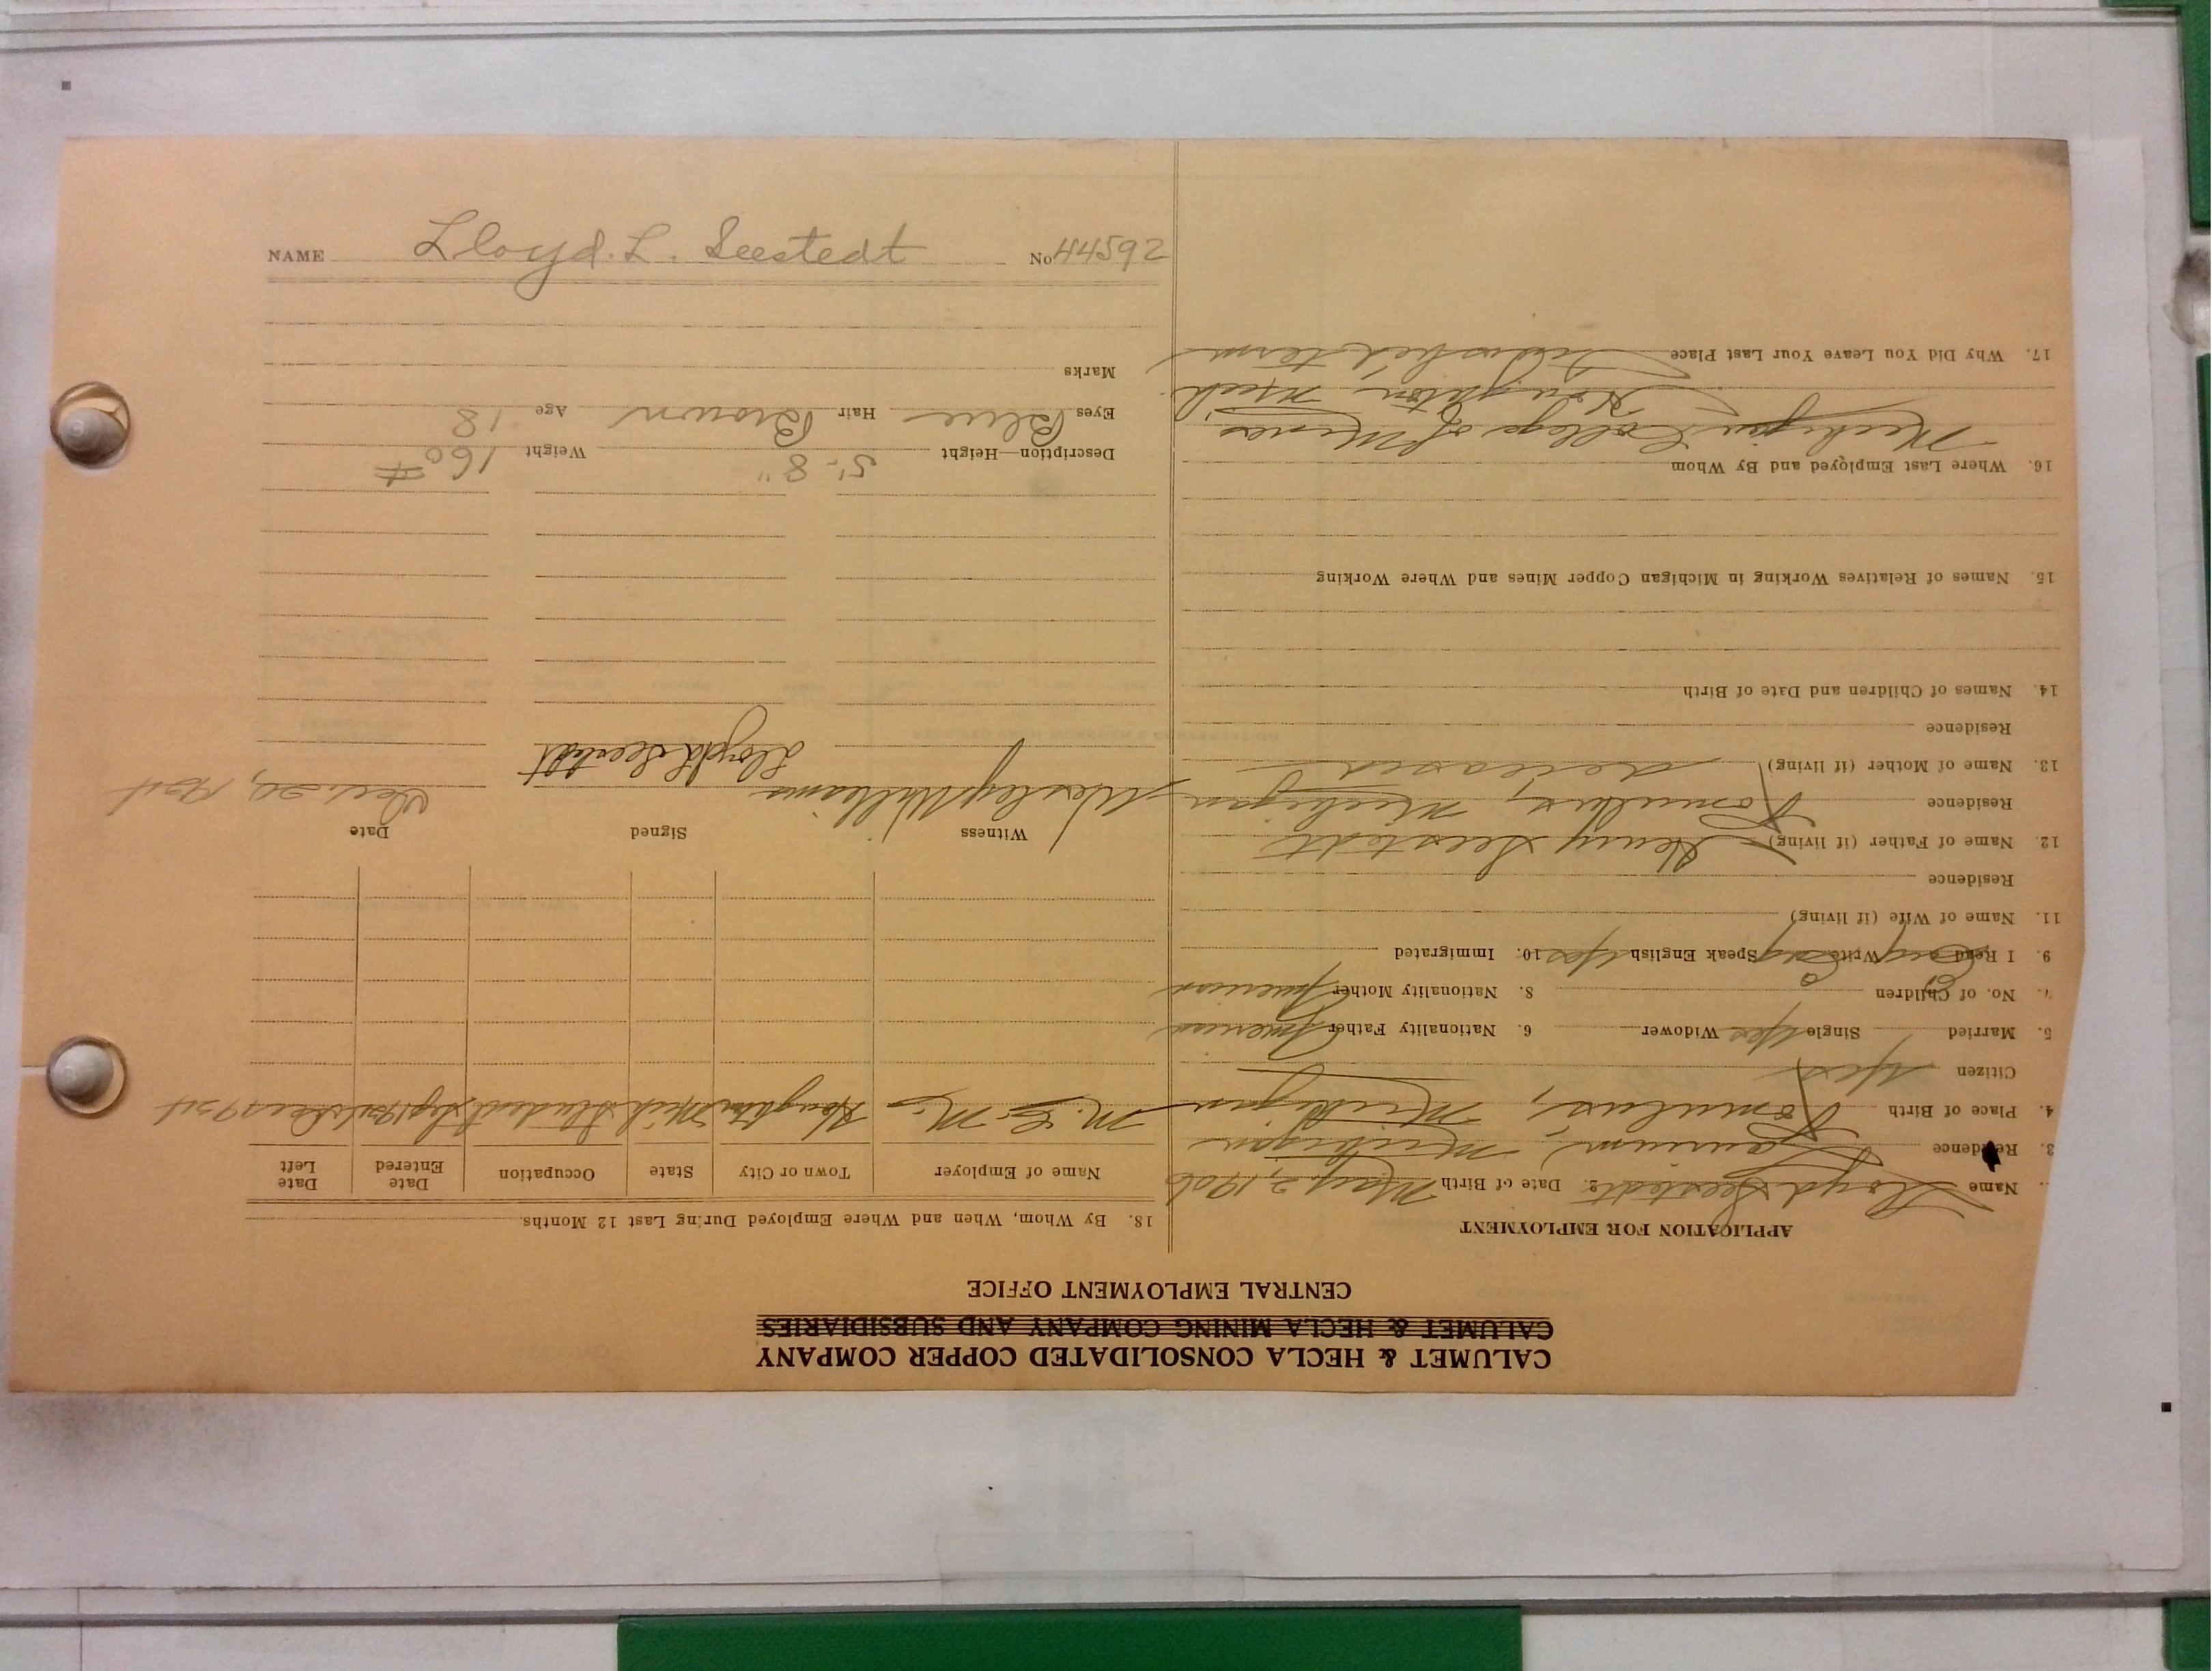 CALUMET & HECLA CONSOLIDATED COPPER COMPANY
CALUMET & HECLA MINING COMPANY AND SUBSIDIARIES
CENTRAL EMPLOYMENT OFFICE
APPLICATION FOR EMPLOYMENT
Name Lloyd Seestedt 2. Date of Birth May 2, 1906
3. Residence Laurium, Michigan
4. Place of Birth Romulus, Michigan
Citizen Yes
5. Married Single Yes Widower 6. Nationality Father American
7. No. of Children 0 8. Nationality Mother American
9. I Read Eng Write Eng Speak English Yes 10. Immigrated
11. Name of Wife (if living)
Residence
12. Name of Father (if living) Henry Seestedt
Residence Romulus, Michigan
13. Name of Mother (if living) deceased
Residence
14. Names of Children and Date of Birth
15. Names of Relatives Working in Michigan Copper Mines and Where Working
16. Where Last Employed and By Whom
Michigan College of Mines
Houghton Mich
17. Why Did You Leave Your Last Place Finished term
18. By Whom, When and Where Employed During Last 12 Months.
Name of Employer Town or City State Occupation Date Entered Date Left
M. C. M. Houghton Mich Student
Witness Signed Date
Wesley Williams Lloyd Seestedt Dec. 20,
Description—Height 5'-8" Weight 160 #
Eyes Blue Hair Brown Age 18
Marks
NAME Lloyd. L. Seestedt No 44592